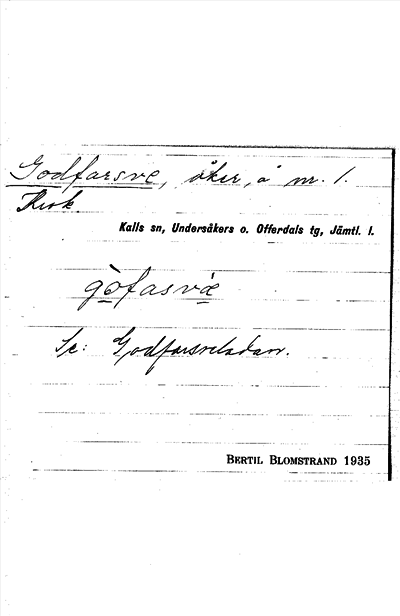 Godfarsve, åker, å nr. 1.
Krok
Kalls sn, Undersåkers o. Offerdals tg, Jämtl. l.
gòfasvæ̀
Se: Godfarsveladan.
BERTIL BLOMSTRAND 1935